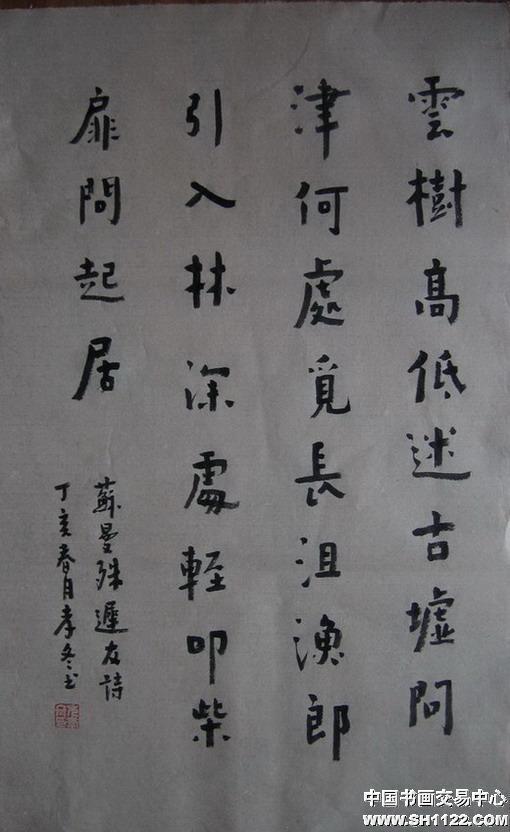 雲樹高低迷古墟問
津何處覓長沮漁郎
引入林深處輕叩柴
扉問起居
蘇曼殊遲友詩
丁亥春月孝冬书
中国书画交易中心
www.SH1122.com